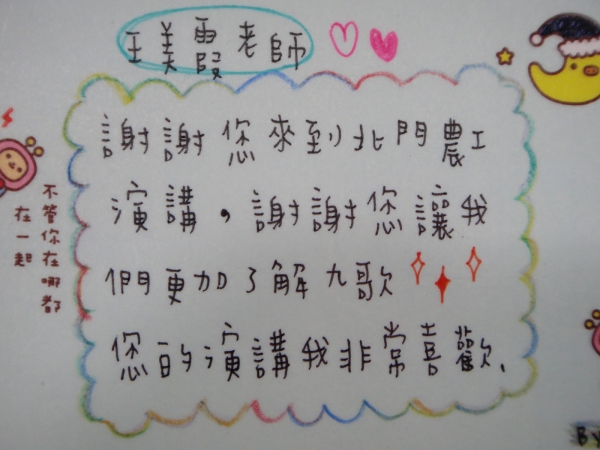 王美霞老師
謝謝您來到北門農工
演講，謝謝您讓我
們更加了解九歌
您的演講我非常喜歡.
不管你在哪都
在一起
By